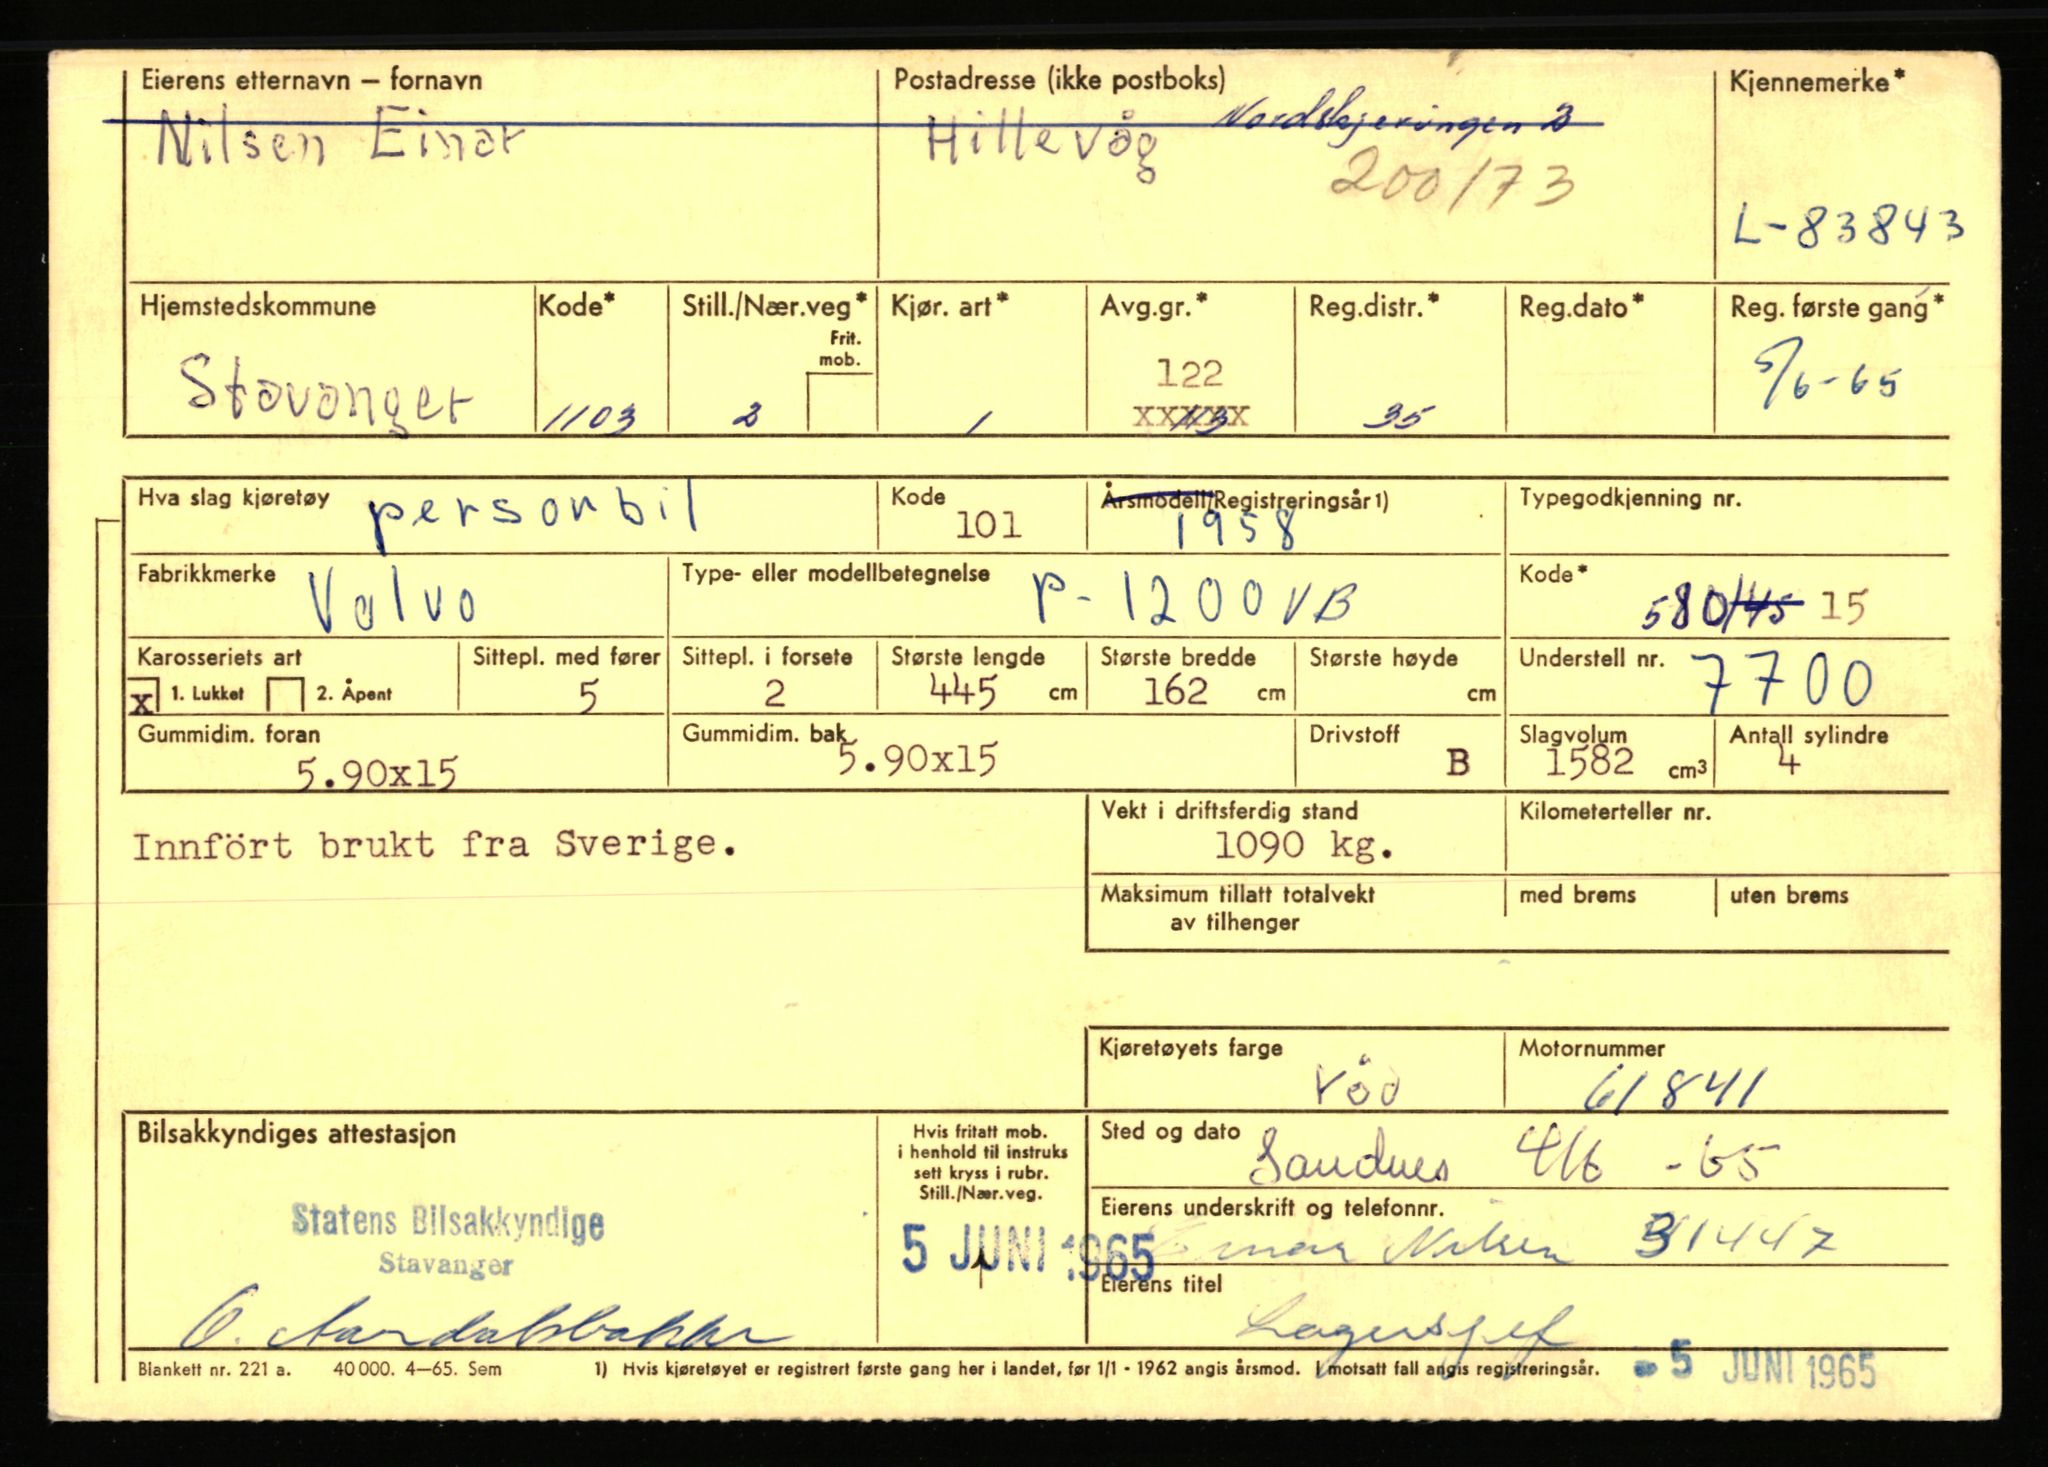 Eierens etternavn – fornavn
Nilsen Einar
Postadresse (ikke postboks)
Hillevåg
200/73
Kjennemerke*
L-83843
Hjemstedskommune
Stavanger
Kode*
1103
Still./Nær.veg*
Frit. mob.
2
Kjør. art*
1
Avg.gr.*
122
xxxxx
113
Reg.distr.*
35
Reg.dato*
Reg. første gang*
5/6-65
Hva slag kjøretøy
personbil
Kode
101
Årsmodell/Registreringsår 1)
1958
Typegodkjenning nr.
Fabrikkmerke
Volvo
Type- eller modellbetegnelse
P-1200 VB
Kode*
580/45 15
Karosseriets art
x 1. Lukket 2. Åpent
Sittepl. med fører
5
Sittepl. i forsete
2
Største lengde
445 cm
Største bredde
162 cm
Største høyde
cm
Understell nr.
7700
Gummidim. foran
5.90x15
Gummidim. bak
5.90x15
Drivstoff
B
Slagvolum
1582 cm3
Antall sylindre
4
Innfört brukt fra Sverige.
Vekt i driftsferdig stand
1090 kg.
Kilometerteller nr.
Maksimum tillatt totalvekt
av tilhenger
med brems
uten brems
Kjøretøyets farge
röd
Motornummer
61841
Bilsakkyndiges attestasjon
Statens Bilsakkyndige
Stavanger
Hvis fritatt mob.
i henhold til instruks
sett kryss i rubr.
Still./Nær.veg.
5 JUNI 1965
Sted og dato
Sandnes 4/6 -65
Eierens underskrift og telefonnr.
Einar Nilsen 31447
Eierens titel
Lagersjef
Blankett nr. 221 a. 40 000. 4—65. Sem
1) Hvis kjøretøyet er registrert første gang her i landet, før 1/1 - 1962 angis årsmod. I motsatt fall angis registreringsår.
- 5 JUNI 1965